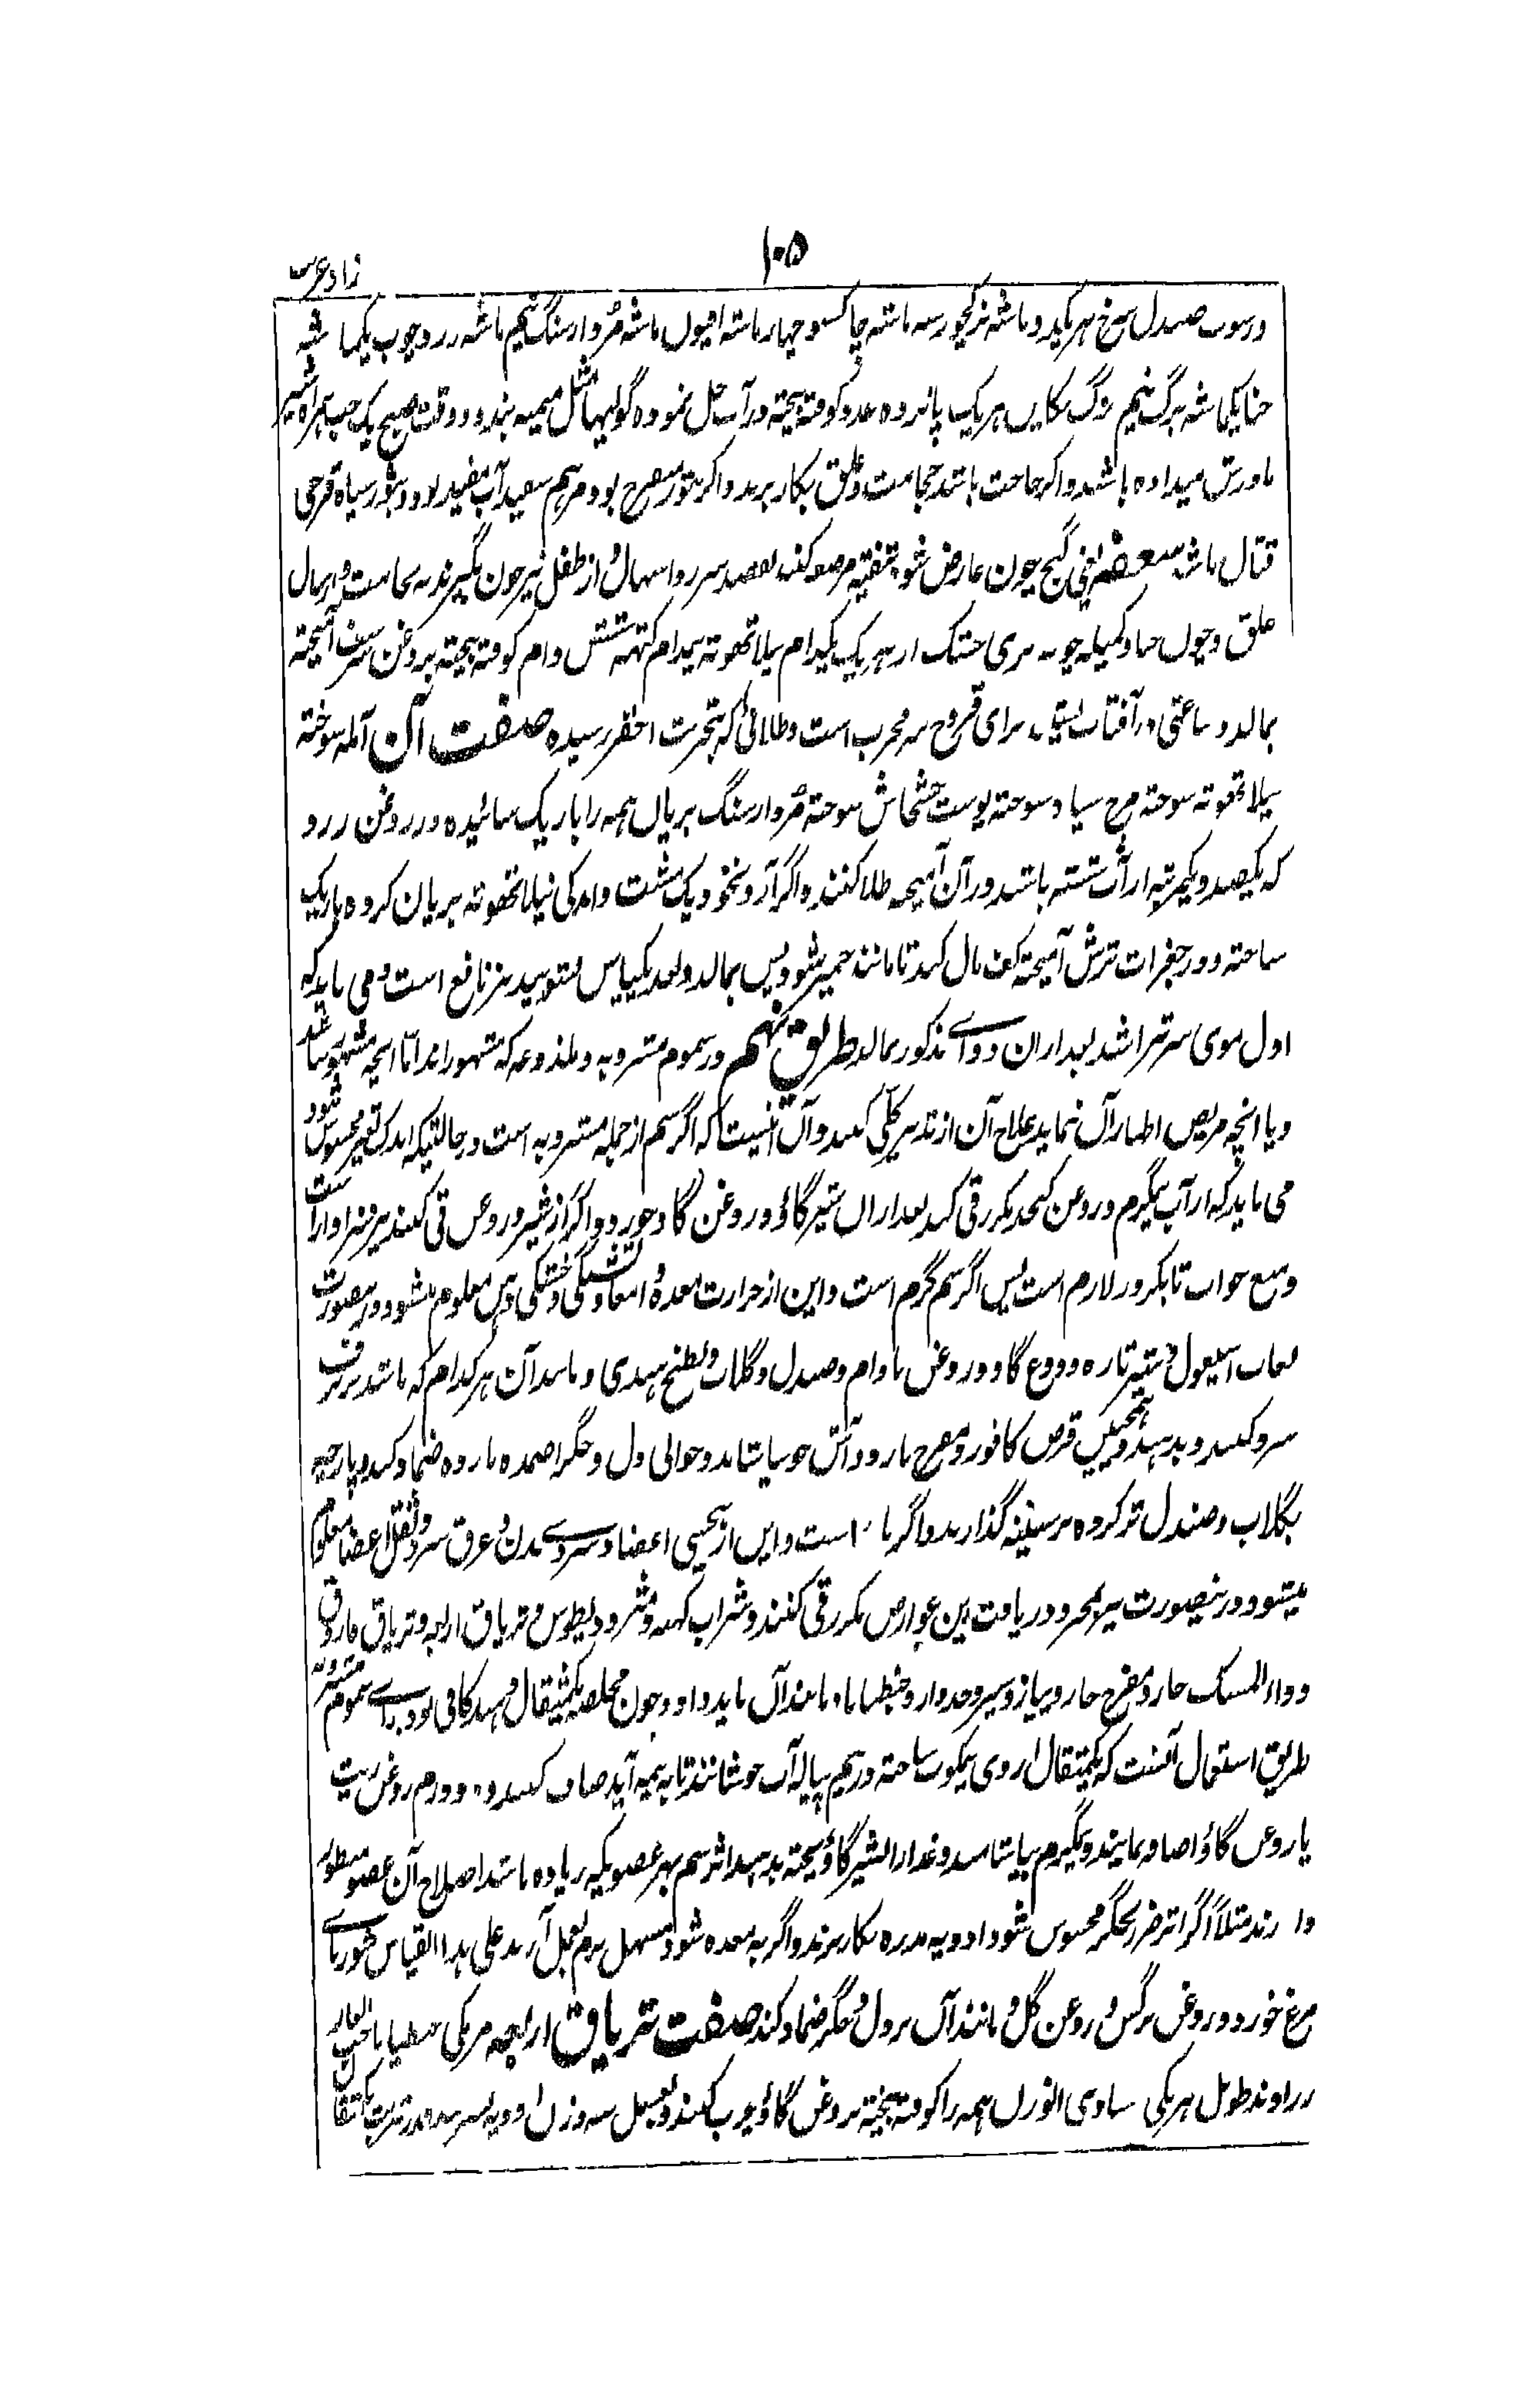 ۱۰۵
زاد غریب
صندل سرخ هریک دو ماشه نرکچور سه ماشه چاکسو چهار ماشه افیون ماشه مردارسنگ نیم ماشه زردچوب یکماشه
حنا یکماشه برگ نیم برگ بکاین هریک پانزده عدد کوفته بیخته در آب حل نموده گولیها مثل میمیه بندد و وقت صبح یک حب همراه شیر
مادرش میداده باشند و اگر حاجت باشد حجامت و علق بکار برند و اگر بثور متقرح بود مرهم سفیدآب مفید بود و بثور سیاه قرحی
قتال باشد سعفه یعنی گنج چون عارض شود تنقیه مرضعه کنند بفصد سررو و اسهال و از طفل نیز خون بگیرند به حجامت و ارسال
علق و چون حنا و کمیله چونه مری خشک از هریک یکدام نیلاتهوته نیمدام کتهه شش دام کوفته بیخته بروغن سرشف آمیخته
بمالد و ساعتی در آفتاب برای قروح سر مجرب است و طلائی که بتجربت احقر رسیده صفت آن آمله سوخته
نیلاتهوته سوخته مرچ سیاه سوخته پوست خشخاش سوخته مردارسنگ بریان همه را باریک سائیده در روغن زرد
که یکصد و یکمرتبه از آب شسته باشد در آن آمیخته طلا کنند و اگر آرد نخود یک مشت و اندکی نیلاتهوته بریان کرده باریک
ساخته و در جغرات ترش آمیخته کف مال کند تا مانند خمیر شود پس بمالد و بعد یکپاس بشوید نیز نافع است و می باید که
اول موی سر تراشد بعد ازان دوای مذکور بمالد طریق نهم در سموم مشروبه و ملدوغه که مشهور اند اما انچه مشهور باشد
و یا انچه مریض اظهار آن نماید علاج آن از تدبیر کلی کند و آن آنست که اگر سم از جمله مشروبه است در حالتیکه اندک تغیر محسوس شود
می باید که از آب نیمگرم و روغن کنجد مکرر قی کند بعد ازان شیر گاؤ و روغن گاؤ خورد و اگر از شیر و روغن قی کنند نیز سزاوار است
و منع خواب تا یکروز لازم است پس اگر سم گرم است و این از حرارت معده و امعا و تشنگی و خشکی دهن معلوم شود درینصورت
لعاب اسپغول و شیر تازه و دوغ گاؤ و روغن بادام و صندل و گلاب و بطیخ هندی و مانند آن هرکدام که باشد ببرف
سرد کنند و بدهند و همچنین قرص کافور و مفرح بارد و آش جو بیاشامد و حوالی دل و جگر اضمده بارده ضماد کند و پارچه
بگلاب و صندل تر کرده بر سینه گذارند و اگر بارد است و این از بیحسی اعضا و سردی بدن و عرق سرد و ثقل اعضا معلوم
میشود درینصورت نیز بمجرد دریافت این عوارض مکرر قی کنند و شراب کهنه و مثرودیطوس و تریاق اربعه و تریاق فاروق
و دواء المسک حار و مفرح حار و پیاز و سیر و جدوار و جنطیانا و مانند آن باید داد و چون مخلصه یکمثقال دهند کافی بود برای سموم مشروبه
طریق استعمال آنست که یکمثقال از وی نیکو ساخته در نیم پیاله آب جوشانند تا به نیمه آید صاف کنند و دو درم روغن زیت
یا روغن گاؤ اضافه نمایند و نیمگرم بیاشامند و غذا از شیر گاؤ پخته بدهند اثر سم بهر عضویکه زیاده باشد اصلاح آن عضو منظور
دارند مثلاً اگر اثر ضرر بجگر محسوس شود ادویه مدره بکار برند و اگر به معده شود مسهل نرم بعمل آرند علی هذا القیاس شوربای
مرغ خورد و روغن نرگس و روغن گل و مانند آن بر دل و جگر ضماد کند صفت تریاق اربعه مر مکی جنطیانا حب الغار
زراوند طویل هریکی مساوی الوزن همه را کوفته بیخته بروغن گاؤ چرب کنند و بعسل سه وزن ادویه بسرشند قدر شربت یکمثقال